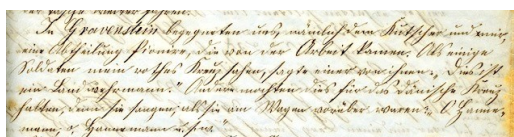 In Gravenstein begegneten uns, nämlich dem Kutscher und mir,
eine Abtheilung Pioniere, die von der Arbeit kamen. Als einige
Soldaten mein rothes Kreuz sahen, sagte einer von ihnen: „Das ist
ein Landwehrmann." Andere mochten uns für das dänische Kreuz
halten, denn sie sangen, als sie am Wagen vorüber waren: „O Hanne-
mann, o Hannemann u. s. w."